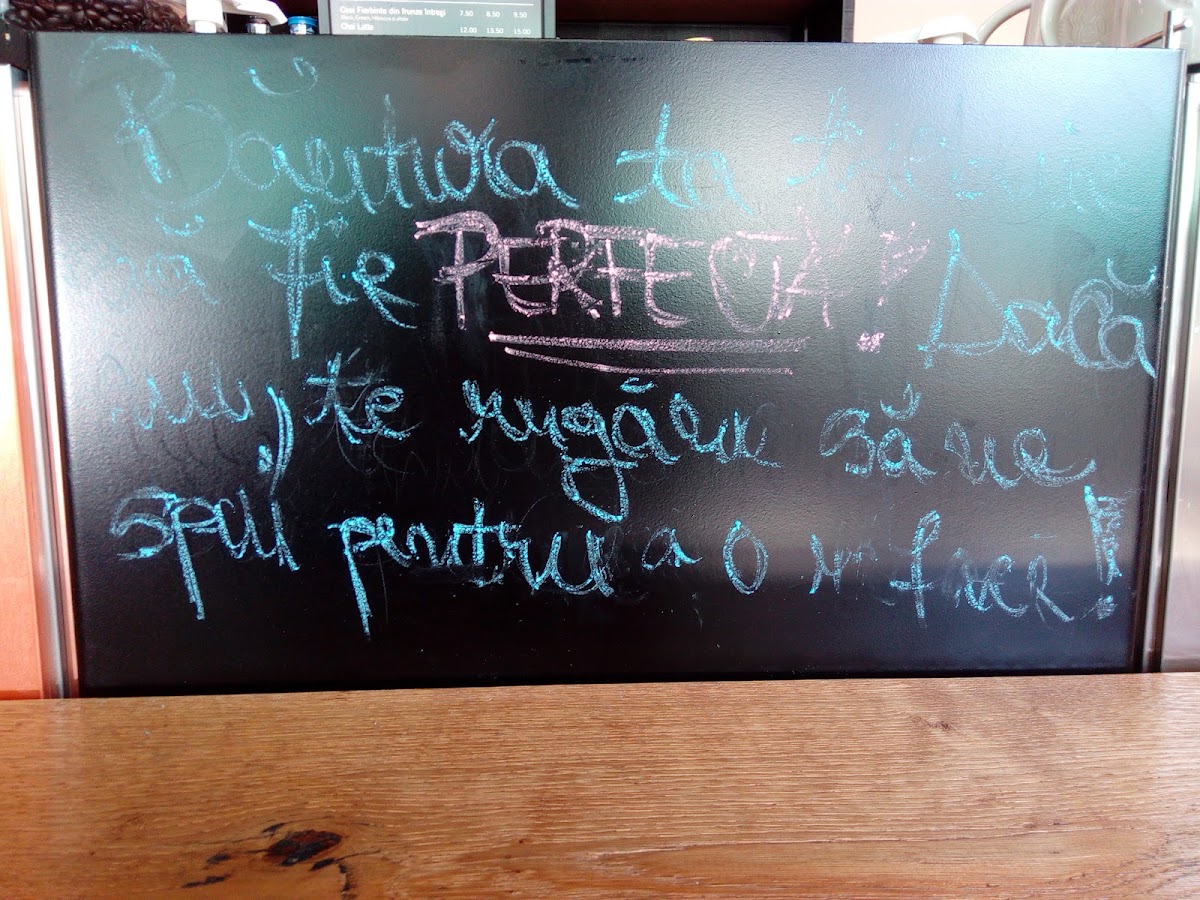 Ceai Fierbinte din frunze întregi 7.50 8.50 9.50
Chai Latte 12.00 13.50 15.00
Băutura ta trebuie
să fie PERFECTĂ! Dacă
nu, te rugăm să ne
spui pentru a o reface!